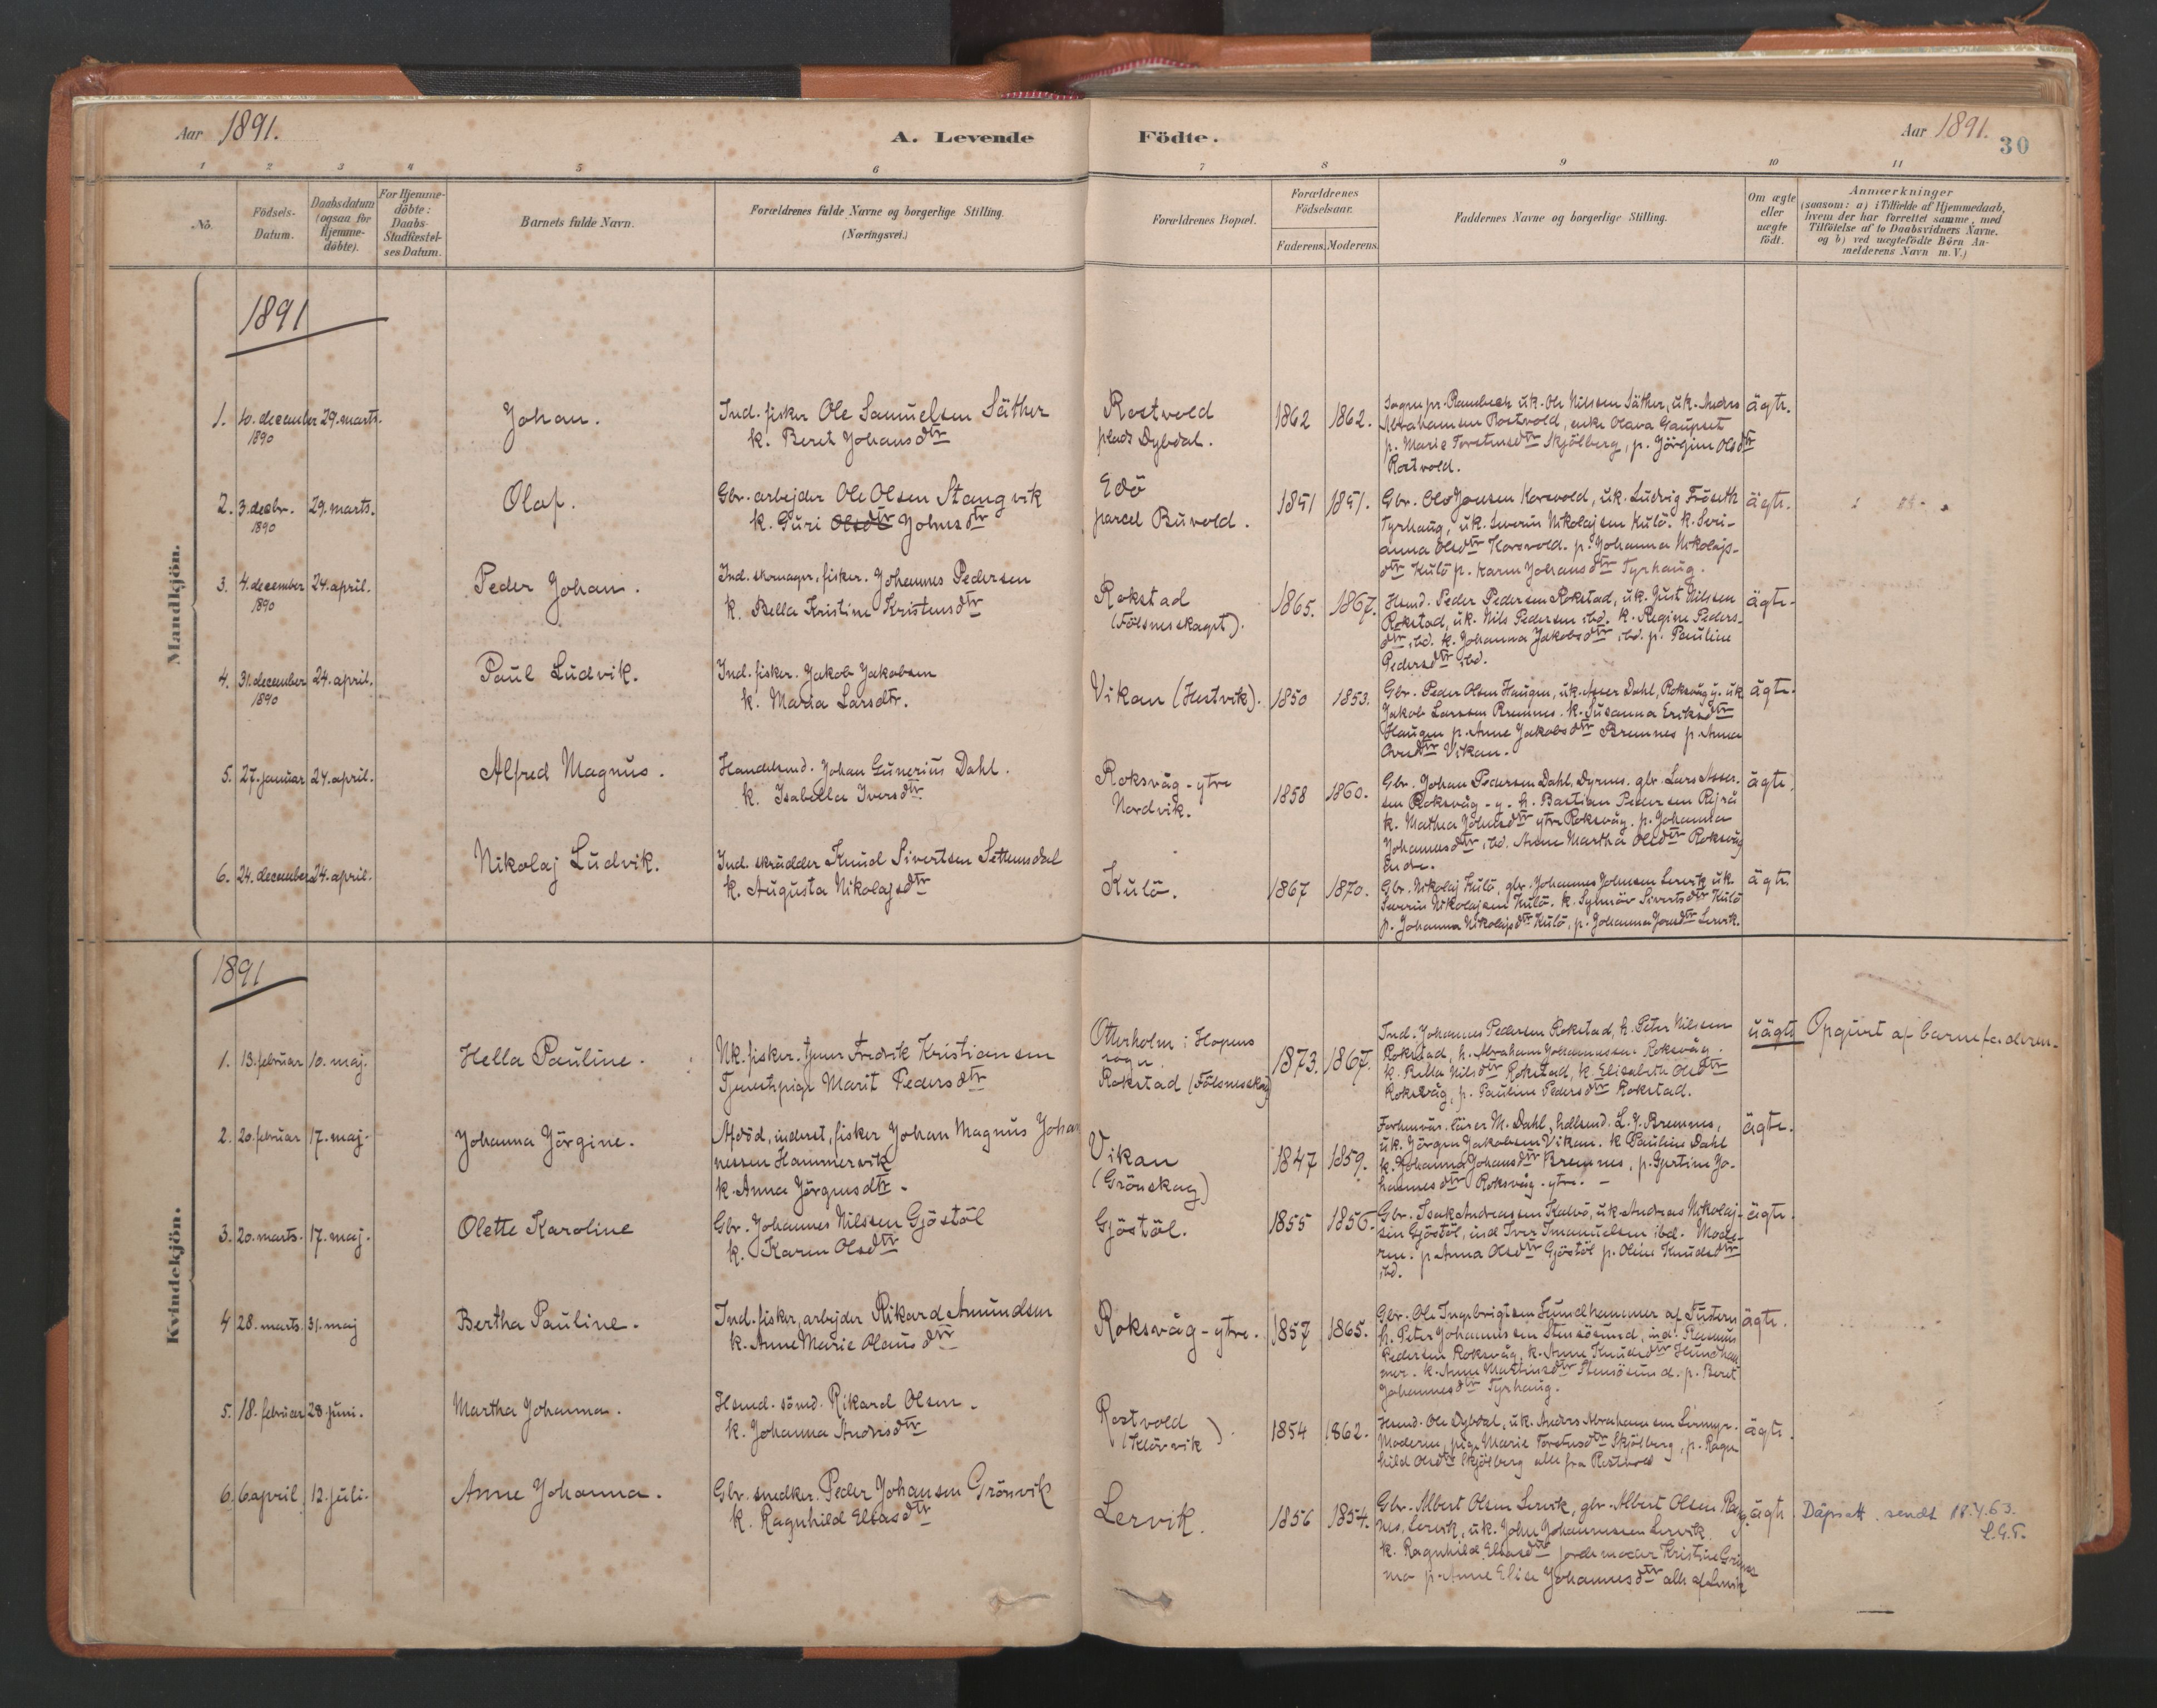 Aar 1891.
A. Levende
Födte.
Aar 1891.
30
1 2 3 4 5 6 7 8 9 10 11
No.
Födsels-Datum.
Daabsdatum (ogsaa for Hjemme-döbte).
For Hjemme-döbte: Daabs-Stadfæstel-ses Datum.
Barnets fulde Navn.
Forældrenes fulde Navne og borgerlige Stilling.
(Næringsvei.)
Forældrenes Bopæl.
Forældrenes Födselsaar.
Faderens. Moderens.
Faddernes Navne og borgerlige Stilling.
Om ægte eller uægte födt.
Anmærkninger
(saasom: a) i Tilfælde af Hjemmedaab,
hvem der har forrettet samme, med
Tilföielse af to Daabsvidners Navne.
og b) ved uægtefödte Börn An-
melderens Navn m. V.)
Mandkjön.
1891
1. 10. december 29. marts.
1890
Johan.
Ind. fisker Ole Samuelsen Säther
k. Beret Johansdtr
Rostvold
plads Dybdal.
1862 1862.
Sognepr. Rambech uk. Ole Nilssen Säther, uk. Anders
Abrahamsen Rostvold, enke Olava Gaupset
p. Marie Torstensdtr Skjölberg, p. Jörgine Olsdtr
Rostvold.
ägte.
2. 3. decbr. 29. marts.
1890
Olaf.
Gbr. arbejder Ole Olsen Stangvik
k. Guri Olsdtr Johnsdtr
Edö
parcel Buvold.
1851 1851.
Gbr. Ole Jonsen Korsvold, uk. Ludvig Fröseth
Tyrhaug, uk. Severin Nikolajsen Kulö. k. Seri-
anna Olsdtr Korsvold. p. Johanna Nikolajs-
dtr Kulö p. Karen Johansdtr Tyrhaug.
ägte.
3. 4. december 24. april.
1890
Peder Johan.
Ind. skomager, fisker. Johannes Pedersen
k. Bella Kristine Kristensdtr
Rokstad
(Fölsneskaget).
1865. 1867.
Hsmd. Peder Pedersen Rokstad, uk. Just Nilssen
Rokstad, uk. Nils Pedersen ibd. k. Regine Peders-
dtr ibd. k. Johanna Jakobsdtr ibd. p. Pauline
Pedersdtr ibd.
ägte.
4. 31. december 24. april.
1890
Paul Ludvik.
Ind. fisker. Jakob Jakobsen
k. Maria Larsdtr.
Vikan (Hestvik).
1850 1853.
Gbr. Peder Olsen Haugen, uk. Asser Dahl, Roksvåg y. uk
Jakob Larssen Bremnes. k. Susanna Eriksdtr
Haugen p. Anne Jakobsdtr Bremnes p. Anna
Vikan.
ägte.
5. 27. januar 24. april.
Alfred Magnus.
Handelsmd. Johan Gunerius Dahl.
k. Isabella Iversdtr
Roksvåg-ytre
Nordvik.
1858 1860.
Gbr. Johan Pedersen Dahl, Dyrnes. gbr. Lars Asser-
sen Roksvåg - y. h. Bastian Pedersen
k. Mathea Johnsdtr ytre Roksvåg. p. Johanna
Johannesdtr ibd. Anne Martha Olsdtr Roksvåg
indre.
ägte.
6. 24. december 24. april.
Nikolaj Ludvik.
Ind. skrädder Knud Sivertsen Settemsdal
k. Augusta Nikolajsdtr
Kulö.
1867 1870.
Gbr. Nikolaj Kulö, gbr. Johannes Johnsen Lervik uk.
Severin Nikolajsen Kulö. k. Synnöv Sivertsdtr Kulö
p. Johanna Nikolajsdtr Kulö, p. Johanna Jonsdtr Lervik.
ägte
Kvindekjön.
1891
1. 13. februar 10. maj.
Hella Pauline.
Uk. fisker. tjener Fredrik Kristiansen
Tjenestpige Marit Pedersdtr
Otterholm i Hopens
sogn.
Rokstad (Fölsneskag)
1873. 1867.
Ind. Johannes Pedersen Rokstad, h. Peter Nilssen
Rokstad, h. Abraham Johannessen Roksvåg.
k. Bella Nilsdtr Rokstad, k. Elisabeth Olsdtr
Roksvåg, p. Pauline Pedersdtr Rokstad.
uägte
Opgivet af barnefaderen.
2. 20. februar 17. maj.
Johanna Jörgine.
Afdöd, inderst, fisker Johan Magnus Johan
nessen Hammervik
k. Anna Jörgensdtr.
Vikan
(Grönskag)
1847 1859.
Forhenvär. lärer M. Dahl, hdlsmd. L. J. Bremnes,
uk. Jörgen Jakobsen Vikan. k. Pauline Dahl
k. Johanna Johansdtr Bremnes, p. Gjertine Jo-
hannesdtr Roksvåg - ytre.
ägte.
3. 20. marts. 17. maj.
Olette Karoline
Gbr. Johannes Nilssen Gjöstöl
k. Karen Olsdtr
Gjöstöl.
1855 1856.
Gbr. Isak Andreassen Kalvö, uk Andreas Nikolaj-
sen Gjöstöl, ind Iver Imanuelsen ibd. Mode-
ren. p. Anna Olsdtr Gjöstöl p. Oline Knudsdtr
ibd.
ägte.
4 28. marts. 31. maj
Bertha Pauline.
Ind. fisker, arbejder Rikard Amundsen
k. Anne Marie Olausdtr
Roksvåg-ytre.
1857 1865.
Gbr. Ole Ingebrigtsen Hundhammer af Tustern
h. Peter Johannessen Stensösund, ind. Rasmus
Pedersen Roksvåg, k. Anne Knudsdtr Hundham
mer. k. Anne Martinsdtr Stensösund. p. Beret
Johannesdtr Tyrhaug.
ägte.
5. 18. februar 28. juni.
Martha Johanna.
Hsmd. sömd. Rikard Olsen.
k. Johanna Andersdtr
Rostvold
(Klövvik).
1854 1862.
Hsmd. Ole Dybdal, uk. Anders Abrahamsen
Moderen, pige Marie Torstensdtr Skjölberg, p. Ragn
hild Olsdtr Skjölberg alle fra Rostvold
ägte.
6. 6 april 12. juli.
Anne Johanna.
Gbr. snedker. Peder Johansen Grönvik
k. Ragnhild Eliasdtr
Lervik.
1856 1854.
Gbr. Albert Olsen Lervik, gbr. Albert Olsen
Lervik, uk. John Johannessen Lervik
k. Ragnhild Eliasdtr jordemoder Kristine
p. Anne Elise Johannesdtr alle af Lervik
ägte
Dåpsatt. sendt 18.4.63.
L.G.T.